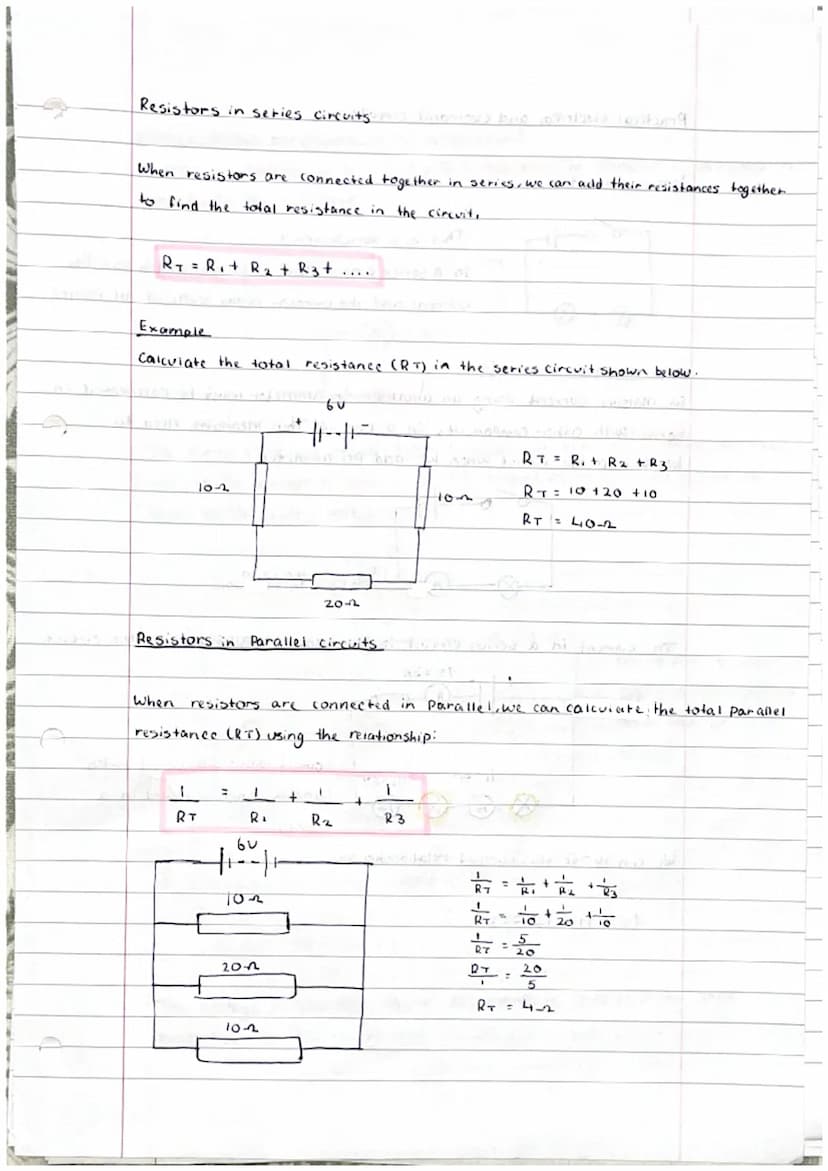 Resistors in series circuits
When resistors are connected together in series, we can add their resistances together
to find the total resistance in the circuit.
RT = R1 + R2 + R3 + ....
Example
Calculate the total resistance (RT) in the series circuit shown below.
6V
+ -
RT = R1 + R2 + R3
10Ω
10Ω
RT = 10 + 20 + 10
RT = 40Ω
20Ω
Resistors in Parallel circuits
When resistors are connected in Parallel, we can calculate the total parallel
resistance (RT) using the relationship:
1/RT = 1/R1 + 1/R2 + 1/R3
6V
1/RT = 1/R1 + 1/R2 + 1/R3
10Ω
1/RT = 1/10 + 1/20 + 1/10
1/RT = 5/20
20Ω
RT/1 = 20/5
RT = 4Ω
10Ω